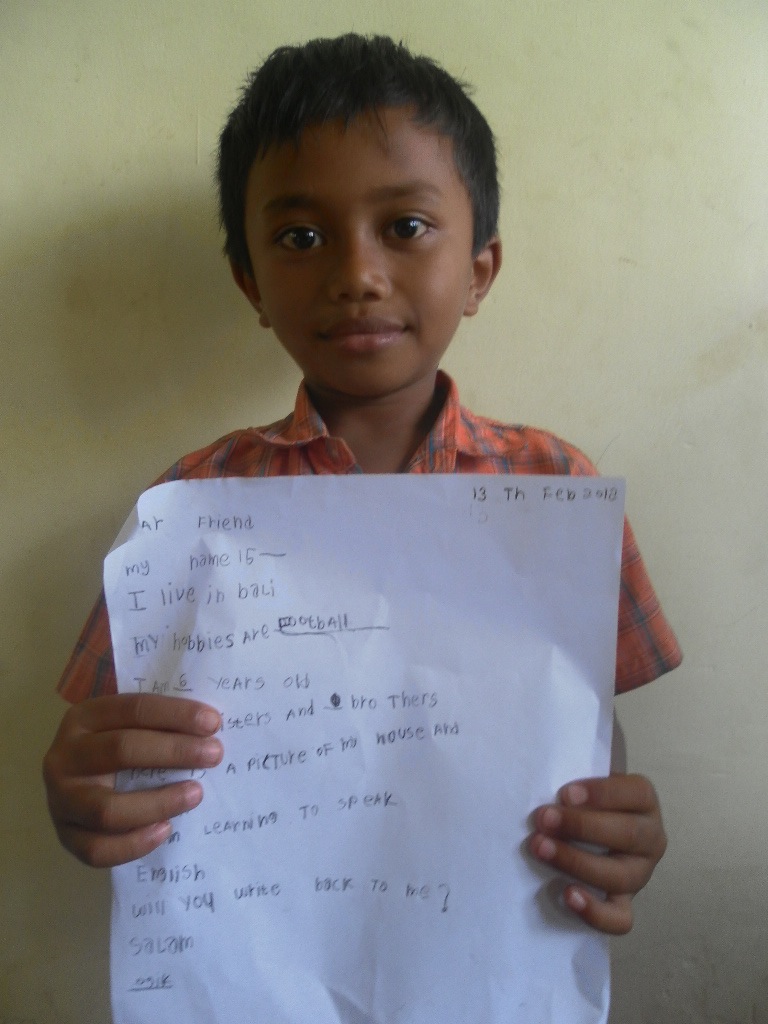 13 Th Feb 2012
Ar Friend
my name is —
I live in bali
my hobbies are Football
I Am 6 years old
isters And bro Thers
here is A picture of my house And
Learning To speak
English
will you write back To me?
salam